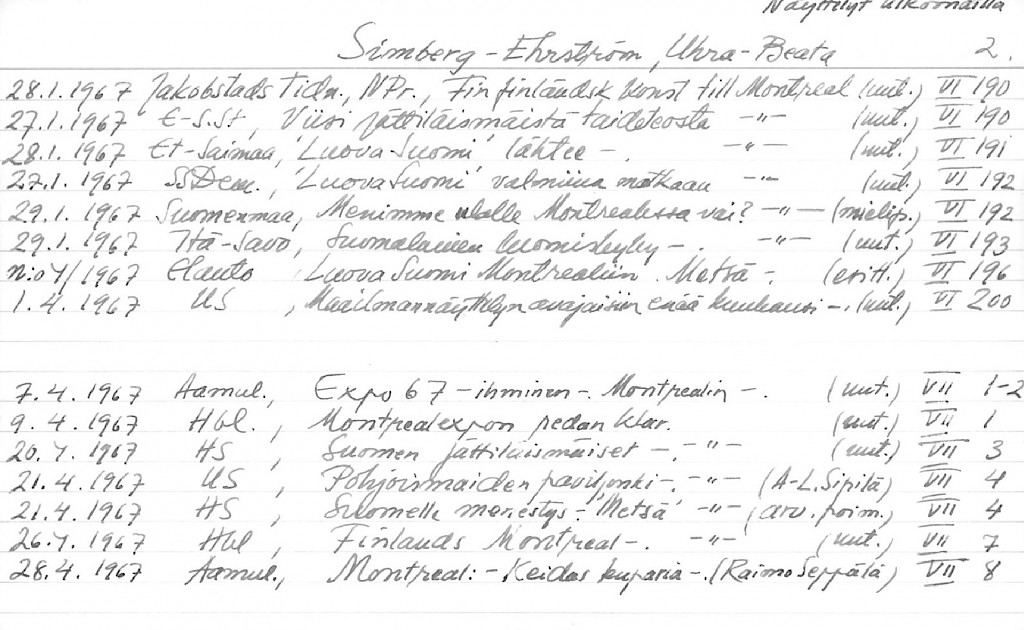 Näyttelyt ulkomailla
Simberg-Ehrström, Uhra-Beata 2.
28.1.1967 Jakobstads Tidn., NPr., Fin finländsk konst till Montreal (uut.) VI 190
27.1.1967 E-S.St, Viisi jättiläismäistä taideteosta -"- (uut.) VI 190
28.1.1967 Et-Saimaa, 'Luova Suomi' lähtee -. -"- (uut.) VI 191
27.1.1967 SSDem., 'Luova Suomi' valmiina matkaan -"- (uut.) VI 192
29.1.1967 Suomenmaa, Menimme Montrealissa vai? -"- (mielip.) VI 192
29.1.1967 Itä-Savo, Suomalainen luomiskyky -. -"- (uut.) VI 193
n:o 4/1967 Elanto Luova Suomi Montrealiin. Metsä -. (esitt.) VI 196
1.4.1967 US, Maailmannäyttelyn avajaisiin enää kuukausi -. (uut.) VI 200
7.4.1967 Aamul., Expo 67 - ihminen - Montrealin -. (uut.) VII 1-2
9.4.1967 Hbl., Montrealexpon redan klar. (uut.) VII 1
20.4.1967 HS, Suomen jättiläismäiset -. -"- (uut.) VII 3
21.4.1967 US, Pohjoismaiden paviljonki -. -"- (A-L. Sipilä) VII 4
21.4.1967 HS, Suomelle menestys - 'Metsä' -"- (arv. poim.) VII 4
26.4.1967 Hbl, Finlands Montreal -. -"- (uut.) VII 7
28.4.1967 Aamul., Montreal: - Keidas kuparia -. (Raimo Seppälä) VII 8